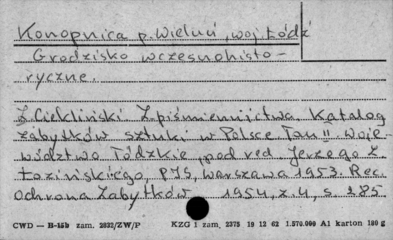 Konopnica p. Wieluń, woj. Łódź
Grodzisko wczesnohisto-
ryczne.
Z. Ciekliński Z piśmiennictwa. Katalog
zabytków sztuki w Polsce Tom II. Woje-
wództwo Łódzkie, pod red Jerzego Z.
Łozińskiego, PIS, Warszawa 1953. Rec.
Ochrona Zabytków 1954, z. 4, s. 285.
CWD — H-15b zam. 2832/ZW/P KZG 1 zam. 2375 19 12 62 1.570.000 A1 karton 180 g